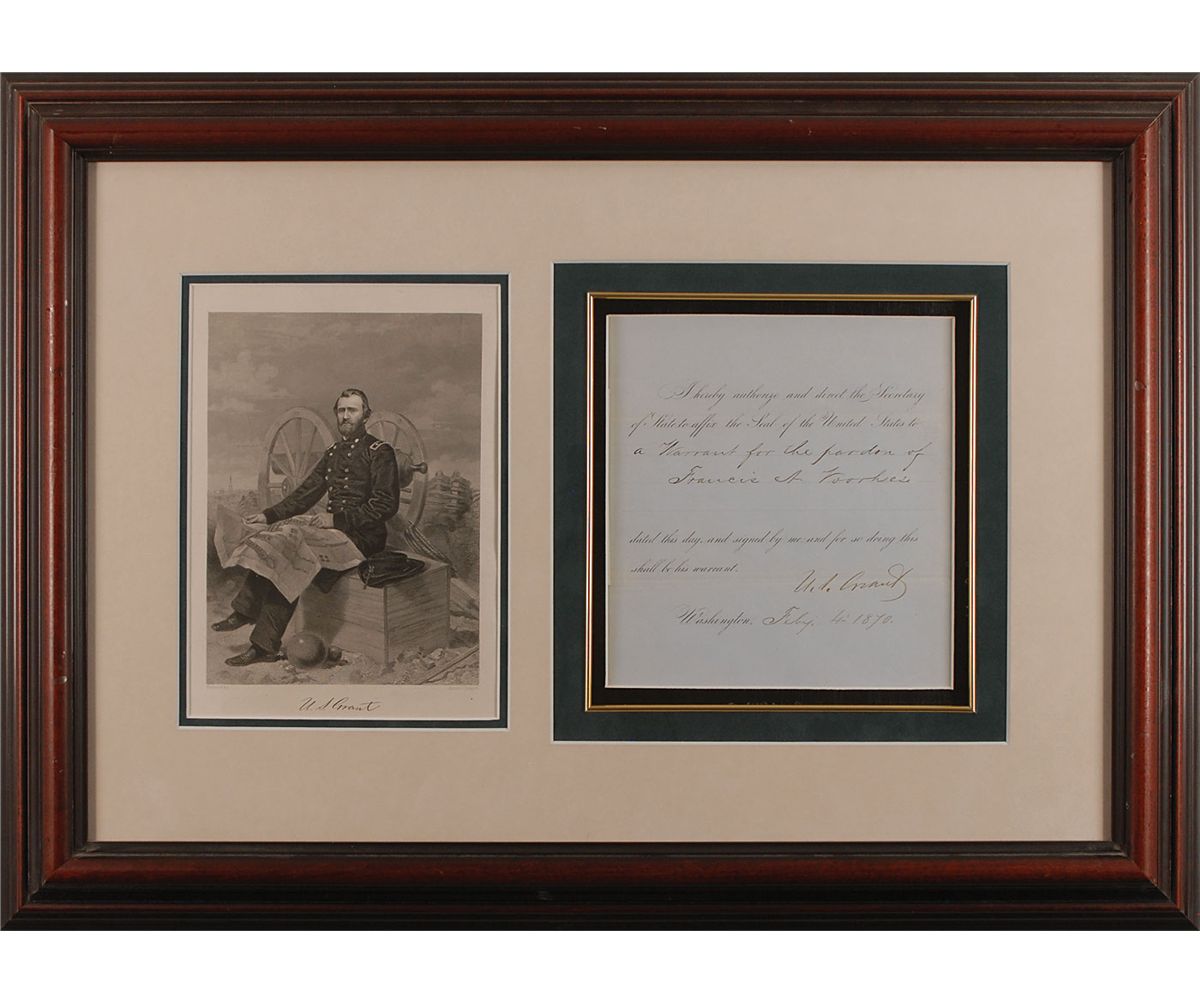 U. S. Grant
I hereby authorize and direct the Secretary
of State to affix the Seal of the United States to
a Warrant for the pardon of
Francis A Voorhees
dated this day, and signed by me: and for so doing this
shall be his warrant.
U. S. Grant
Washington, Feby. 4th 1870.